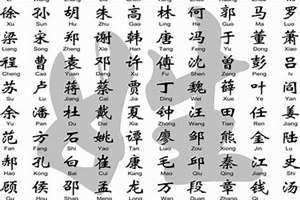 徐 孙 胡 朱 高 林 何 郭 马 罗
Xu Sun Hu Zhu Gao Lin He Guo Ma Luo
梁 宋 郑 谢 韩 唐 冯 于 董 萧
Liang Song Zheng Xie Han Tang Feng Yu Dong Xiao
程 曹 袁 邓 许 傅 沈 曾 彭 吕
Cheng Cao Yuan Deng Xu Fu Shen Zeng Peng Lü
苏 卢 蒋 蔡 贾 丁 魏 薛 叶 阎
Su Lu Jiang Cai Jia Ding Wei Xue Ye Yan
余 潘 杜 戴 夏 钟 汪 田 任 姜
Yu Pan Du Dai Xia Zhong Wang Tian Ren Jiang
范 方 石 姚 谭 廖 邹 熊 金 陆
Fan Fang Shi Yao Tan Liao Zou Xiong Jin Lu
郝 孔 白 崔 康 毛 邱 秦 江 史
Hao Kong Bai Cui Kang Mao Qiu Qin Jiang Shi
顾 侯 邵 孟 龙 万 段 章 钱 汤
姓